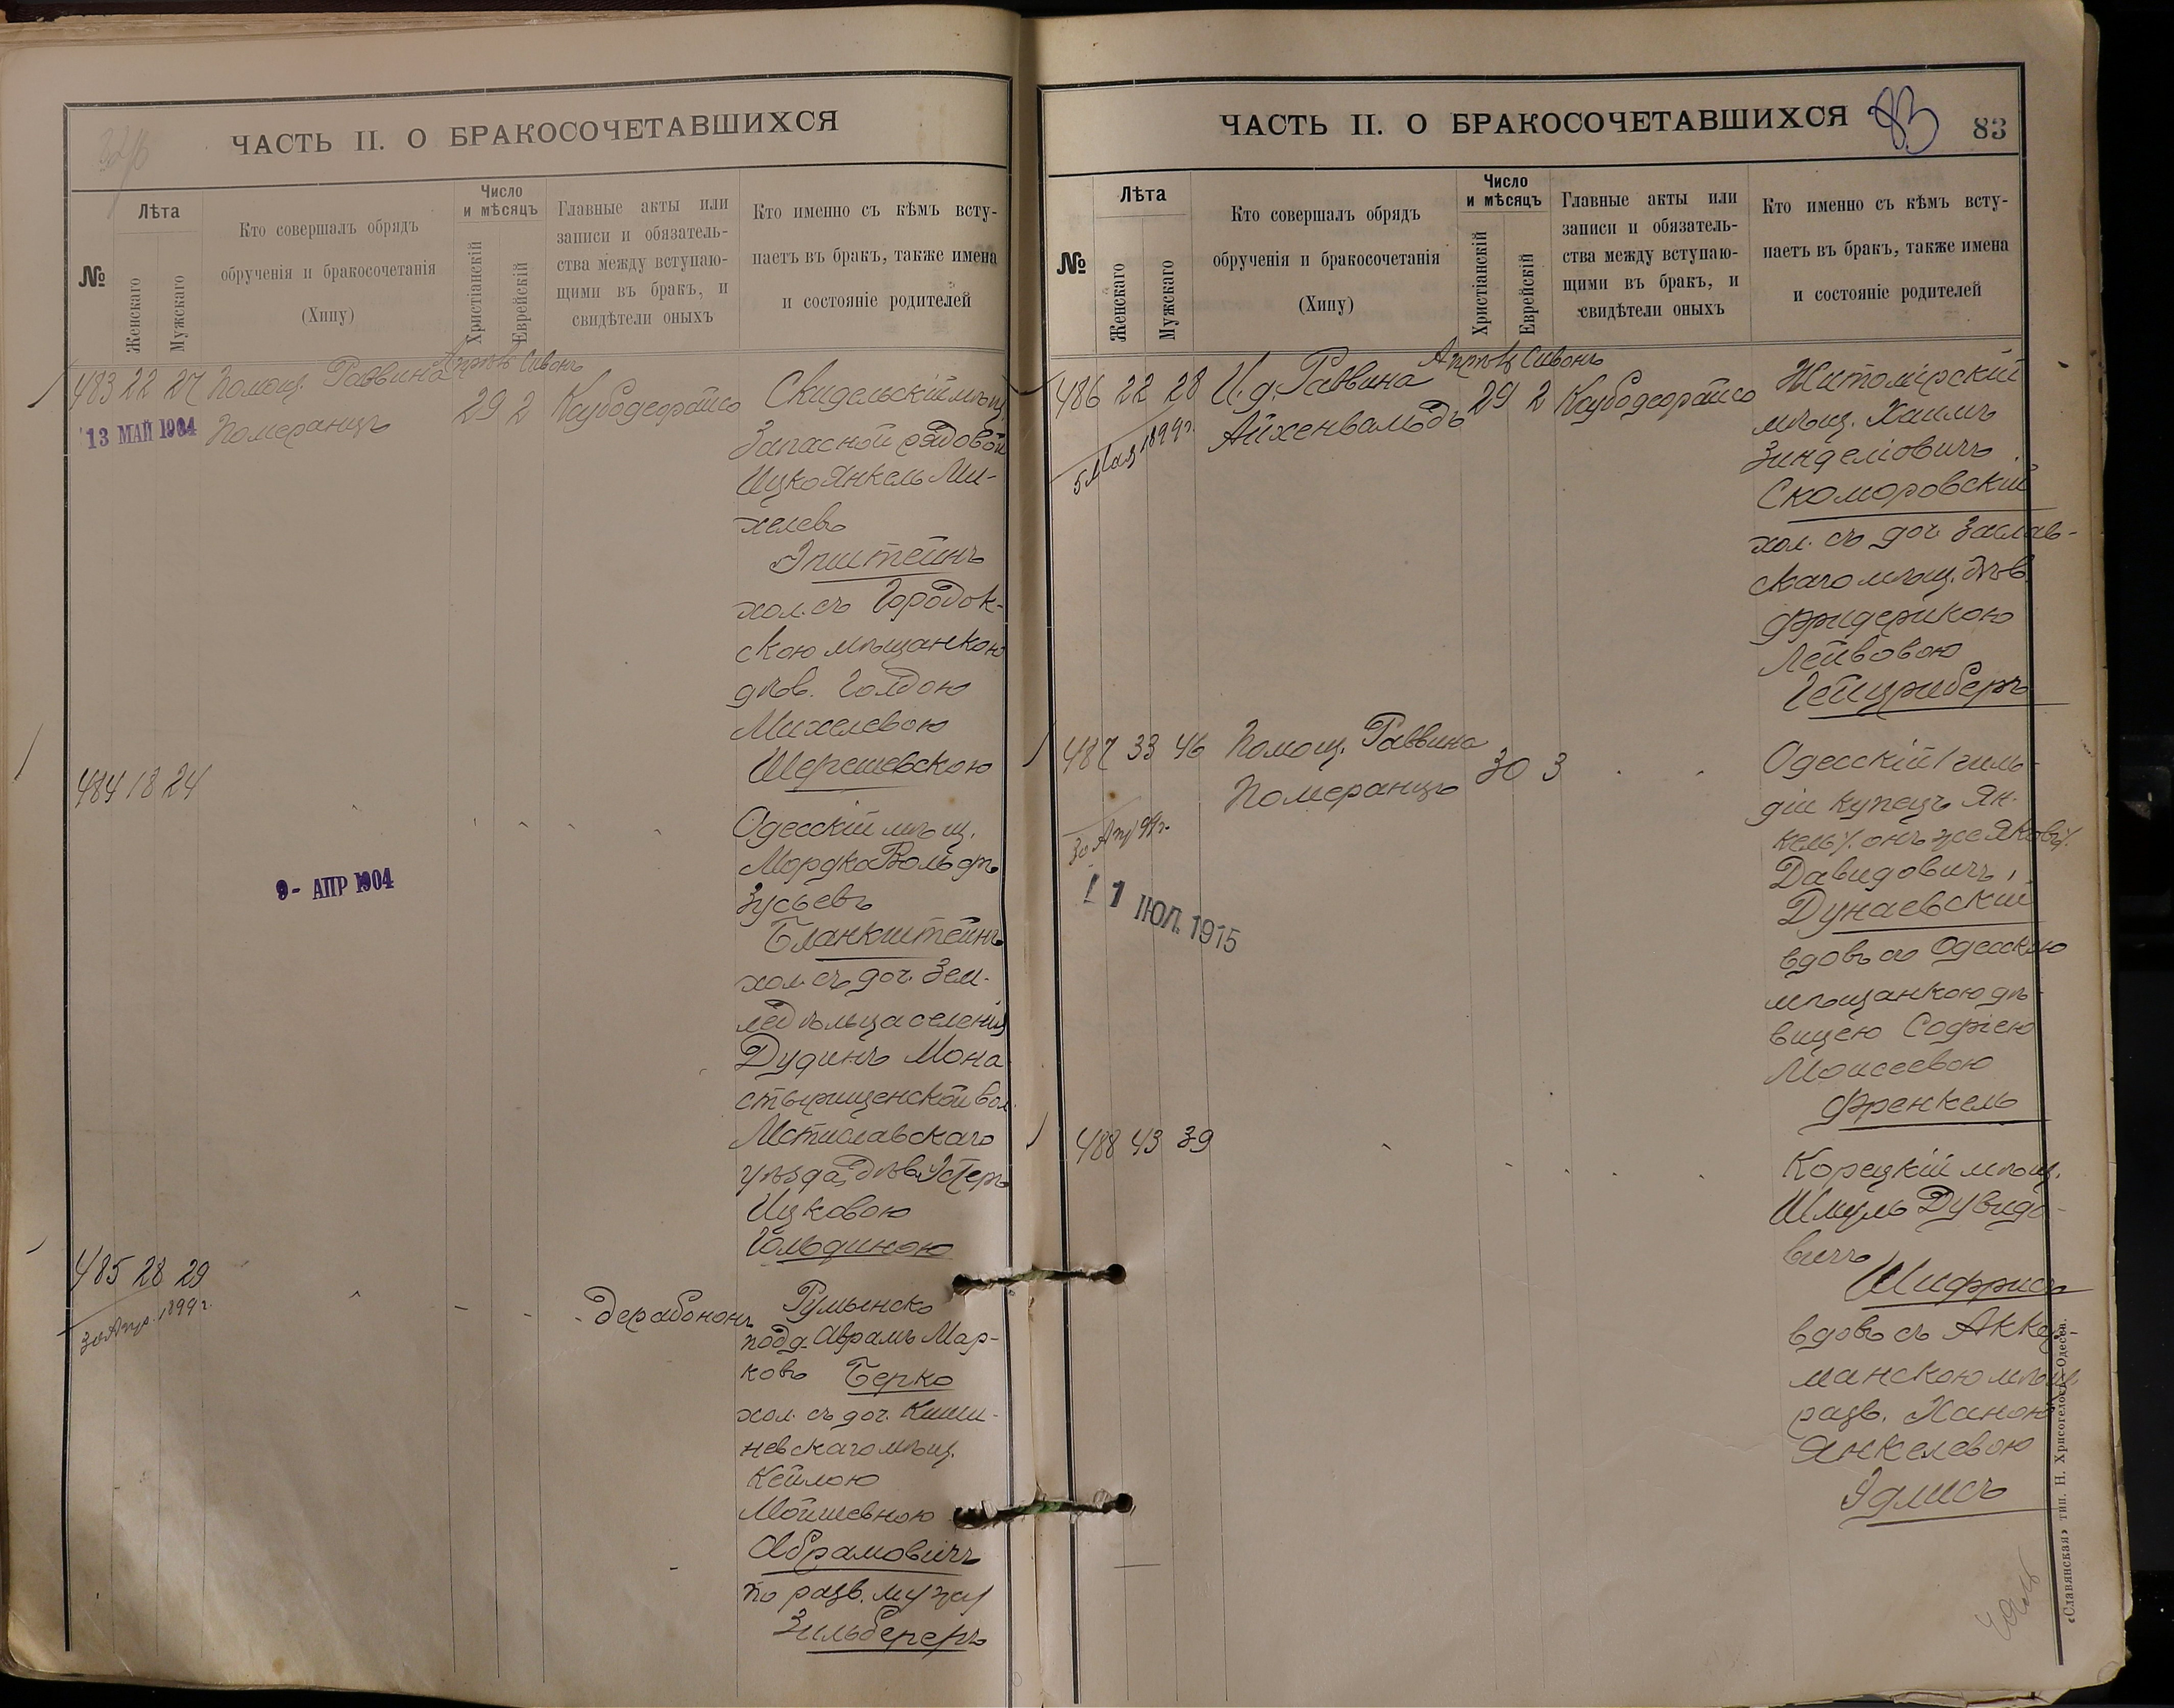 ЧАСТЬ II. О БРАКОСОЧЕТАВШИХСЯ
№
Лѣта
Женскаго
Мужскаго
Кто совершалъ обрядъ
обрученія и бракосочетанія
(Хипу)
Число
и мѣсяцъ
Христіанскій
Еврейскій
Главные акты или
записи и обязатель-
ства между вступаю-
щими въ бракъ, и
свидѣтели оныхъ
Кто именно съ кѣмъ всту-
паетъ въ бракъ, также имена
и состояніе родителей
483 22 27 Помощ. Раввина
Померанцъ
13 МАЙ 1904
Сивонъ
29 2
Скидельскій мѣщ.
Запасной рядовой
Ицко Янкель Ми-
хелевъ
Эпштейнъ
хол. съ Городок-
скою мѣщанкою
дѣв. Голдою
Михелевою
Шерешевскою
484 18 24
9- АПР 1904
Одесскій мѣщ.
Мордко Вольфъ
Зусьевъ
Бланкштейнъ
хол. съ доч. Зем-
ледѣльца селенія
Дудинъ Мона-
стырщенской вол.
Мстиславскаго
уѣзда, дѣв. Эстеръ
Ицковою
Гольдиною
485 28 29
30 Апр. 1899 г.
дерабононъ
Румынско
подд. Абрамъ Мар-
ковъ Берко
хол. съ доч. Киши-
невскаго мѣщ.
Кейлою
Мойшевною
Абрамовичъ
по разв. мужу
Зильбереръ
ЧАСТЬ II. О БРАКОСОЧЕТАВШИХСЯ
83
83
№
Лѣта
Женскаго
Мужскаго
Кто совершалъ обрядъ
обрученія и бракосочетанія
(Хипу)
Число
и мѣсяцъ
Христіанскій
Еврейскій
Главные акты или
записи и обязатель-
ства между вступаю-
щими въ бракъ, и
свидѣтели оныхъ
Кто именно съ кѣмъ всту-
паетъ въ бракъ, также имена
и состояніе родителей
486 22 28 И. д. Раввина
Айхенвальдъ
5 Мая 1899 г.
Сивонъ
29 2
Житомірскій
мѣщ. Хаимъ
Зинделіовичъ
Скоморовскій
хол. съ доч. Заслав-
скаго мѣщ. дѣв.
Фридерикою
Лейвовою
Гейцриберъ
487 33 46 Помощ. Раввина
Померанцъ
30 3
30 Апр 99 г.
1 ІЮЛ. 1915
Одесскій 1 гиль-
діи купецъ Ян-
кель /: онъ же Яковъ :/
Давидовичъ
Дунаевскій
вдовъ съ Одесскою
мѣщанкою дѣ-
вицею Софіею
Моисеевою
Френкель
488 43 39
Корецкій мѣщ.
Шмуль Дувидо-
вичъ
Шифрисъ
вдовъ съ Аккер-
манскою мѣщ.
разв. Ханою
Янкелевою
Эдлисъ
«Славянская» тип. Н. Хрисогелосъ—Одесса.